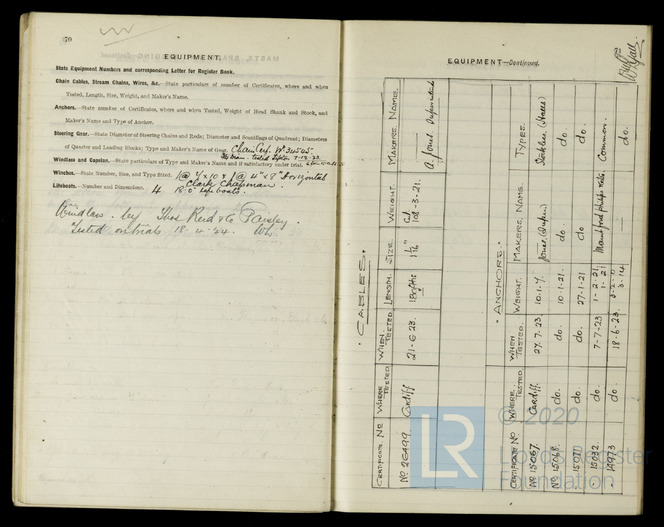 70
EQUIPMENT.
State Equipment Numbers and corresponding Letter for Register Book.
Chain Cables, Stream Chains, Wires, &c.—State particulars of number of Certificates, where and when
Tested, Length, Size, Weight, and Maker's Name.
Anchors.—State number of Certificates, where and when Tested, Weight of Head Shank and Stock, and
Maker's Name and Type of Anchor.
Steering Gear.—State Diameter of Steering Chains and Rods; Diameter and Scantlings of Quadrant; Diameters
of Quarter and Leading Blocks; Type and Maker's Name of Gear. Chain Cert. No 34545.
Tested Tipton 7-12-23.
Windlass and Capstan.—State particulars of Type and Maker's Name and if satisfactory under trial.
Winches.—State Number, Size, and Type fitted. 1@ 7"x10" & 1@ 4"x8" Horizontal
Clark Chapman.
Lifeboats.—Number and Dimensions. 4 18'0" lifeboats.
Windlass by Thos Reid & Co Paisley.
Tested on trials 18-4-24.
EQUIPMENT—Continued.
CABLES.
CERTIFICATE No WHERE TESTED. WHEN TESTED. LENGTH. SIZE. WEIGHT. MAKERS NAMES.
No. 26499. Cardiff 21-6-23. 1 1/16" 102-3-21.
ANCHORS.
CERTIFICATE No WHERE TESTED. WHEN TESTED. WEIGHT. MAKERS NAME. TYPES.
No 15067. Cardiff. 27.7.23 10.1.7 Stockless
No 15068. do. do. 10-1-21. do. do.
15071 do. do. 27-1-21 do do.
15032 do. 7-7-23 1-2-21 Common.
14973 do. 18-6-23. do.
LR
© 2020
Lloyd's Register
Foundation